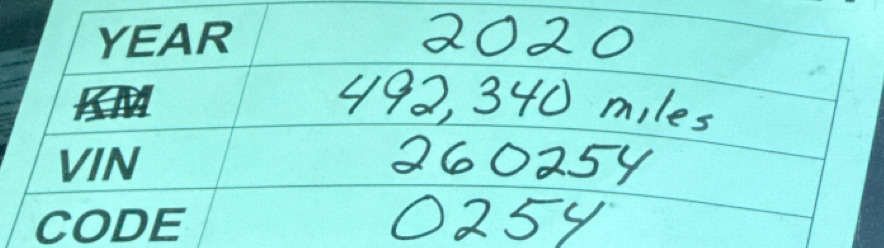 YEAR 2020
KM 492,340 miles
VIN 260254
CODE 0254